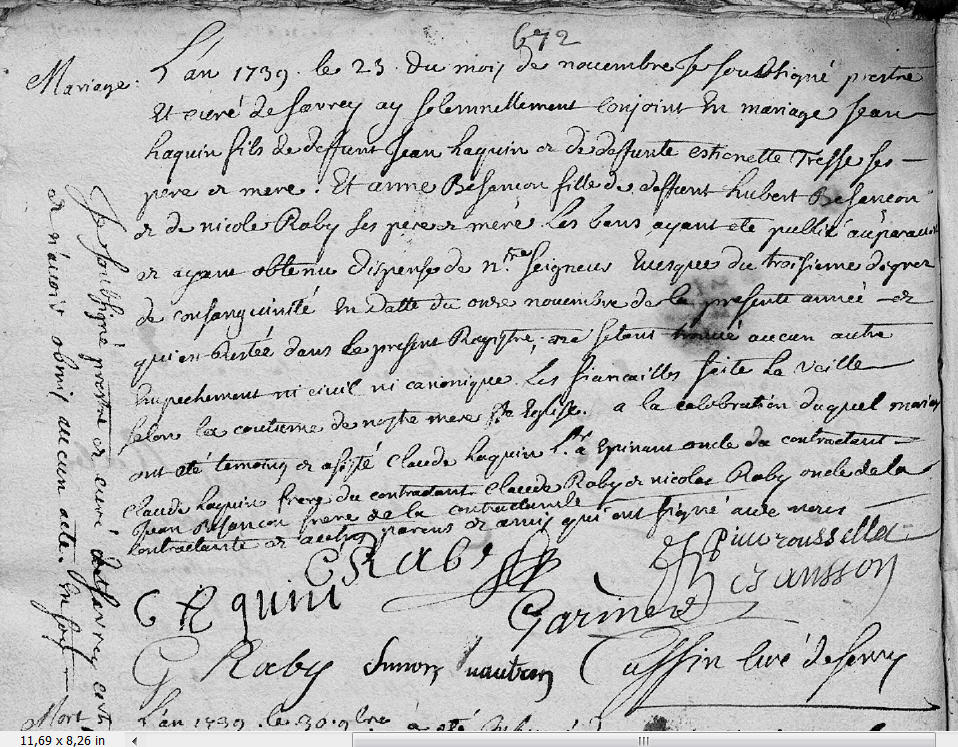 672
Mariage.
L'an 1739. le 23. du mois de novembre Je soussigné prestre
Et curé de Savrey ay solemnellement conjoint En mariage Jean
haquin fils de deffunt Jean haquin et de deffunte estienette Tresse ses
pere et mere. Et anne Besançon fille de deffunt hubert Besançon
et de nicole Raby ses pere et mere. Les bans ayant eté publié auparavant
et ayant obtenu dispense de n.re Seigneur Evesque du troisieme degrez
de consanguinité En datte du onze novembre de la presente année et
dans le present Registre, ne s'etant trouvé aucun autre
Empechement ni civil ni canonique. Les fiancailles faite La veille
selon la coutume de nostre mere s.te Eglise. a la celebration duquel mariage
ont eté temoins et assisté Claude haquin à Epinant oncle du contractant
Claude haquin frere du contractant Claude Raby et nicolas Raby oncle de la
Jean Besançon frere de la contractante
contractante et autres parens et amis qui ont signé avec nous
C Raby
Besansson
C haquin
Garinet
G Raby Simon vautrin Cassin curé de Savrey
Je soubsigné prestre et curé de Savrey certi
et n'avoir obmis aucun acte. En foy
Mort
L'an 1739. le 30. 9bre a eté
11,69 x 8,26 in